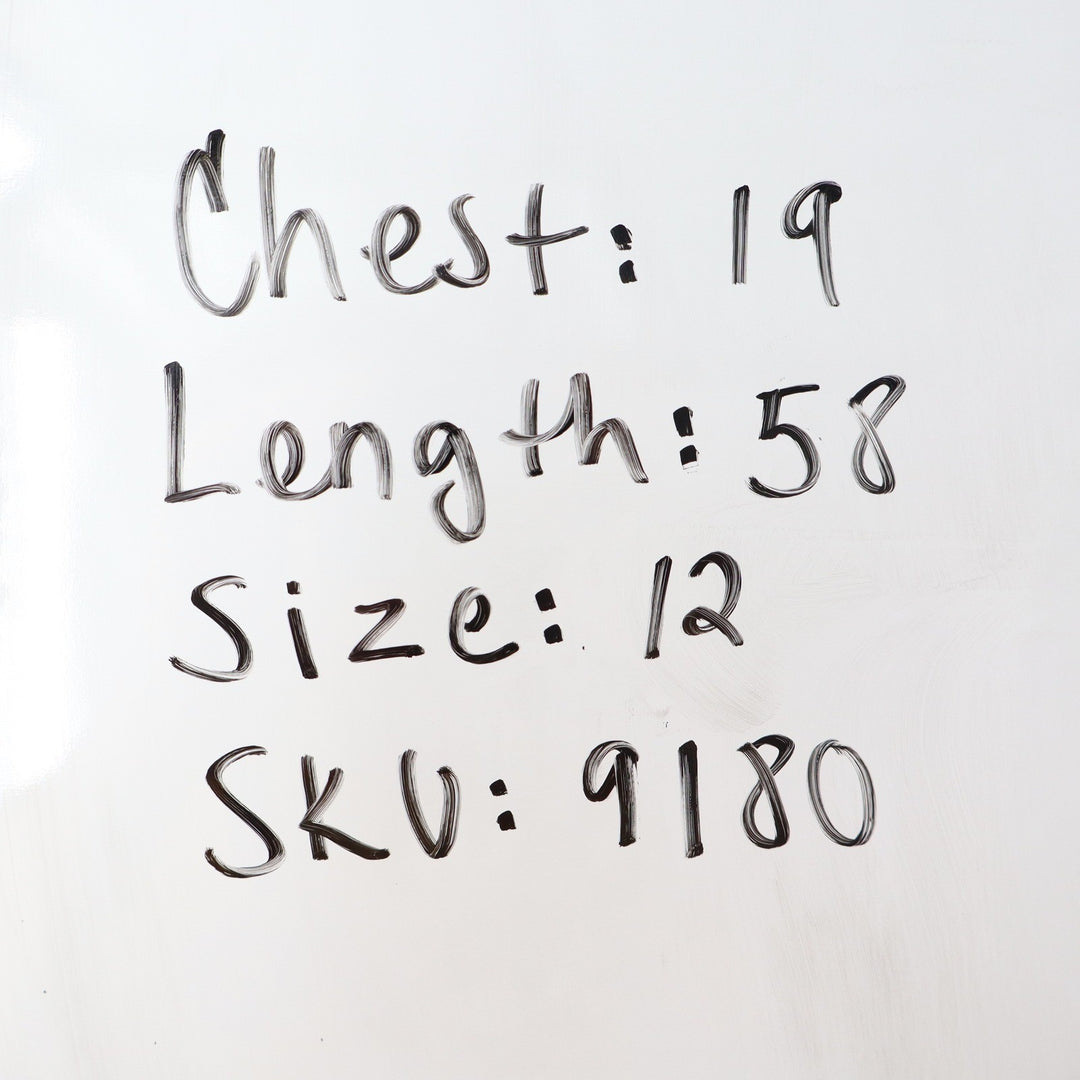 Chest: 19
Length: 58
Size: 12
SKU: 9180